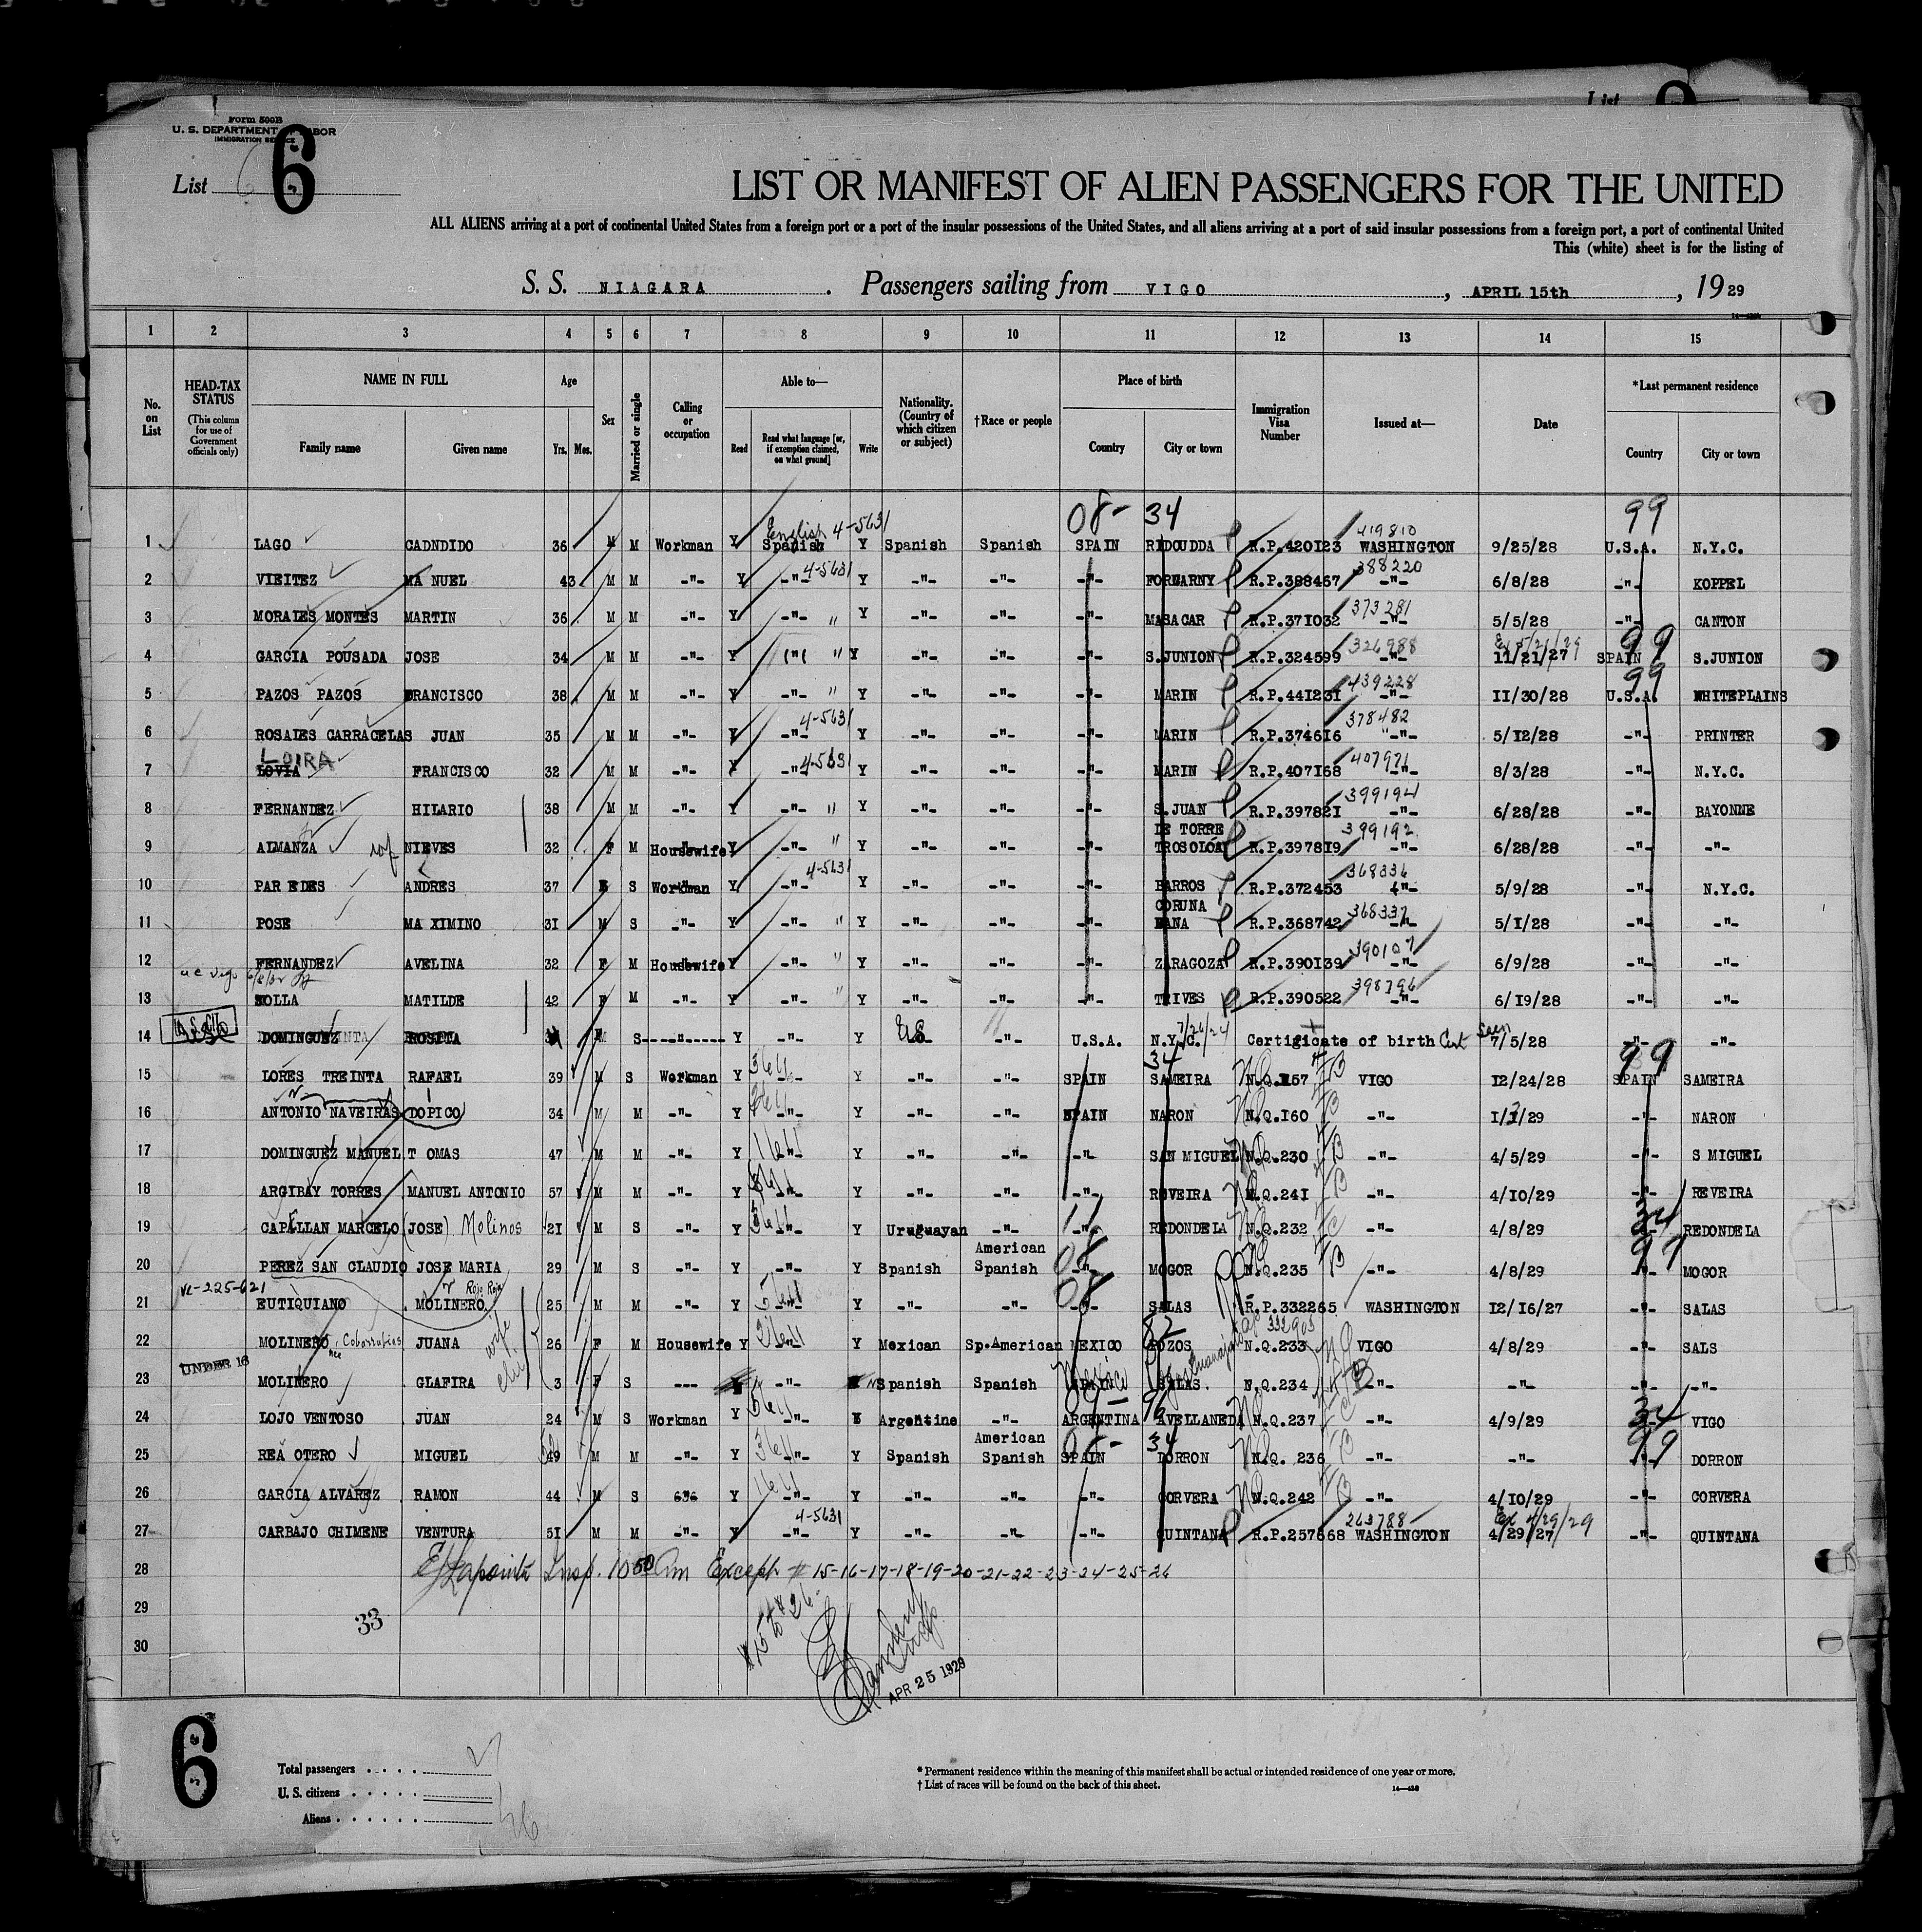 List
Form 500B
U. S. DEPARTMENT OF LABOR
IMMIGRATION SERVICE
List 6
6
LIST OR MANIFEST OF ALIEN PASSENGERS FOR THE UNITED
ALL ALIENS arriving at a port of continental United States from a foreign port or a port of the insular possessions of the United States, and all aliens arriving at a port of said insular possessions from a foreign port, a port of continental United
This (white) sheet is for the listing of
S. S. NIAGARA. Passengers sailing from VIGO, APRIL 15th, 19 29
1 2 3 4 5 6 7 8 9 10 11 12 13 14 15
No. on List
HEAD-TAX STATUS (This column for use of Government officials only)
NAME IN FULL Family name Given name
Age Yrs. Mos.
Sex
Married or single
Calling or occupation
Able to— Read Read what language [or, if exemption claimed, on what ground] Write
Nationality. (Country of which citizen or subject)
†Race or people
Place of birth Country City or town
Immigration Visa Number
Issued at—
Date
*Last permanent residence Country City or town
08- 34 99
English 4-5631 419810
1 LAGO CADNDIDO 36 M M Workman Y Spanish Y Spanish Spanish SPAIN RIDOUDDA R.P.420123 WASHINGTON 9/25/28 U.S.A. N.Y.C.
4-5631 388220
2 VIEITEZ MA NUEL 43 M M -"- Y -"- Y -"- -"- -"- FORNARNY R.P.388467 -"- 6/8/28 -"- KOPPEL
373281
3 MORALES MONTES MARTIN 36 M M -"- Y -"- " Y -"- -"- -"- MASACAR R.P.371032 -"- 5/5/28 -"- CANTON
326988 Ex 5/21/29 99
4 GARCIA POUSADA JOSE 34 M M -"- Y -"- " Y -"- -"- -"- S.JUNION R.P.324599 -"- 11/21/27 SPAIN S.JUNION
439228 99
5 PAZOS PAZOS FRANCISCO 38 M M -"- Y -"- " Y -"- -"- -"- MARIN R.P.441231 -"- 11/30/28 U.S.A. WHITEPLAINS
4-5631 378482
6 ROSALES CARRACELAS JUAN 35 M M -"- Y -"- Y -"- -"- -"- MARIN R.P.374616 -"- 5/12/28 -"- PRINTER
LOIRA 4-5631 407971
7 LOVIA FRANCISCO 32 M M -"- Y -"- Y -"- -"- -"- MARIN R.P.407168 -"- 8/3/28 -"- N.Y.C.
399194
8 FERNANDEZ HILARIO 38 M M -"- Y -"- " Y -"- -"- -"- S.JUAN R.P.397821 -"- 6/28/28 -"- BAYONNE
DE TORRE 399192
9 ALMANZA wf NIEVES 32 F M Housewife Y -"- " Y -"- -"- -"- TROSOLOA R.P.397819 -"- 6/28/28 -"- -"-
4-5631 368336
10 PAREDES ANDRES 37 S Workman Y -"- Y -"- -"- -"- BARROS R.P.372453 -"- 5/9/28 -"- N.Y.C.
CORUNA 368337
11 POSE MA XIMINO 31 M S -"- Y -"- " Y -"- -"- -"- NANA R.P.368742 -"- 5/1/28 -"- -"-
390107
12 FERNANDEZ AVELINA 32 F M Housewife Y -"- " Y -"- -"- -"- ZARAGOZA R.P.390139 -"- 6/9/28 -"- -"-
398796
13 SOLLA MATILDE 42 F M -"- Y -"- " Y -"- -"- -"- TRIVES R.P.390522 -"- 6/19/28 -"- -"-
7/26/24
14 DOMINGUEZ ROSITA S -----"----- Y -"- Y US -"- U.S.A. N.Y.C. Certigicate of birth Cert Seen 7/5/28 -"- -"-
34 99
15 LORES TREINTA RAFAEL 39 M S Workman Y -"- Y -"- -"- SPAIN SAMEIRA N.Q.157 VIGO 12/24/28 SPAIN SAMEIRA
16 ANTONIO NAVEIRAS DOPICO 34 M M -"- Y -"- Y -"- -"- SPAIN NARON N.Q.160 -"- 1/3/29 -"- NARON
17 DOMINGUEZ MANUEL T OMAS 47 M M -"- Y -"- Y -"- -"- -"- SAN MIGUEL N.Q.230 -"- 4/5/29 -"- S MIGUEL
18 ARGIBAY TORRES MANUEL ANTONIO 57 M M -"- Y -"- Y -"- -"- -"- ROVEIRA N.Q.241 -"- 4/10/29 -"- REVEIRA
19 CAPALLAN MARCELO (JOSE) Molinos 21 M S -"- Y -"- Y Uruguayan -"- -"- REDONDELA N.Q.232 -"- 4/8/29 34 REDONDELA
American
20 PEREZ SAN CLAUDIO JOSE MARIA 29 M S -"- Y -"- Y Spanish Spanish 08 MOGOR N.Q.235 -"- 4/8/29 99 MOGOR
VL-225-621 Rojo Rojo
21 EUTIQUIANO MOLINERO 25 M M -"- Y -"- Y -"- -"- 08 SALAS R.P.332265 WASHINGTON 12/16/27 -"- SALAS
wife 82 332903
22 MOLINERO nee Cobarrubias JUANA 26 F M Housewife Y -"- Y Mexican Sp.American MEXICO POZOS N.Q.233 VIGO 4/8/29 -"- SALS
UNDER 16 Mexico Guanajuato
23 MOLINERO GLAFIRA 3 F S --- -"- Spanish Spanish SPAIN SALAS N.Q.234 -"- -"- -"- -"-
24 LOJO VENTOSO JUAN 24 M S Workman Y -"- Y Argentine -"- ARGENTINA AVELLANEDA N.Q.237 -"- 4/9/29 34 VIGO
American 34
25 REA OTERO MIGUEL 49 M M -"- Y -"- Y Spanish Spanish SPAIN DORRON N.Q. 236 -"- -"- 99 DORRON
26 GARCIA ALVAREZ RAMON 44 M S 636 Y -"- Y -"- -"- -"- CORVERA N.Q.242 -"- 4/10/29 -"- CORVERA
4-5631 263788 Ex 4/29/29
27 CARBAJO CHIMENE VENTURA 51 M M -"- Y -"- Y -"- -"- -"- QUINTANA R.P.257868 WASHINGTON 4/29/27 -"- QUINTANA
28 Insp. 10 50 Am Except # 15-16-17-18-19-20-21-22-23-24-25-26
29 33
30 # 15 to # 26
APR 25 1929
6
Total passengers . . . . . 27
U. S. citizens . . . . .
Aliens . . . . . . 26
* Permanent residence within the meaning of this manifest shall be actual or intended residence of one year or more.
† List of races will be found on the back of this sheet.